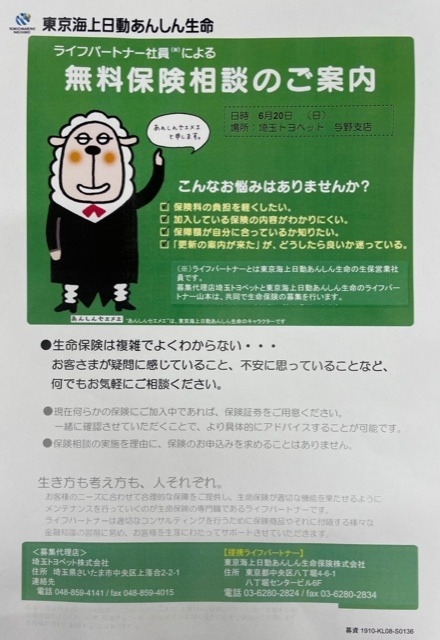 TOKIO MARINE
NICHIDO
東京海上日動あんしん生命
ライフパートナー社員(※)による
無料保険相談のご案内
日時 6月20日 (日)
場所:埼玉トヨペット 与野支店
あんしんセエメエ
と申します。
こんなお悩みはありませんか?
保険料の負担を軽くしたい。
加入している保険の内容がわかりにくい。
保障額が自分に合っているか知りたい。
「更新の案内が来た」が、どうしたら良いか迷っている。
(※)ライフパートナーとは東京海上日動あんしん生命の生保営業社
員です。
募集代理店埼玉トヨペットと東京海上日動あんしん生命のライフパー
トナー山本は、共同で生命保険の募集を行います。
あんしんセエメエ "あんしんセエメエ"は、東京海上日動あんしん生命のキャラクターです
●生命保険は複雑でよくわからない・・・
お客さまが疑問に感じていること、不安に思っていることなど、
何でもお気軽にご相談ください。
●現在何らかの保険にご加入中であれば、保険証券をご用意ください。
一緒に確認させていただくことで、より具体的にアドバイスすることが可能です。
●保険相談の実施を理由に、保険のお申込みを求めることはありません。
生き方も考え方も、人それぞれ。
お客様のニーズに合わせて合理的な保障をご提供し、生命保険が適切な機能を果たせるように
メンテナンスを行っていくのが生命保険の専門職であるライフパートナーです。
ライフパートナーは適切なコンサルティングを行うために保険商品やそれに付随する様々な
金融知識の習得に努め、お客様を生涯にわたってサポートさせていただきます。
<募集代理店>
埼玉トヨペット株式会社
住所 埼玉県さいたま市中央区上落合2-2-1
連絡先
電話 048-859-4141 / fax 048-859-4015
【提携ライフパートナー】
東京海上日動あんしん生命保険株式会社
住所 東京都中央区八丁堀4-6-1
八丁堀センタービル6F
電話 03-6280-2824 / fax 03-6280-2834
募資 1910-KL08-S0136